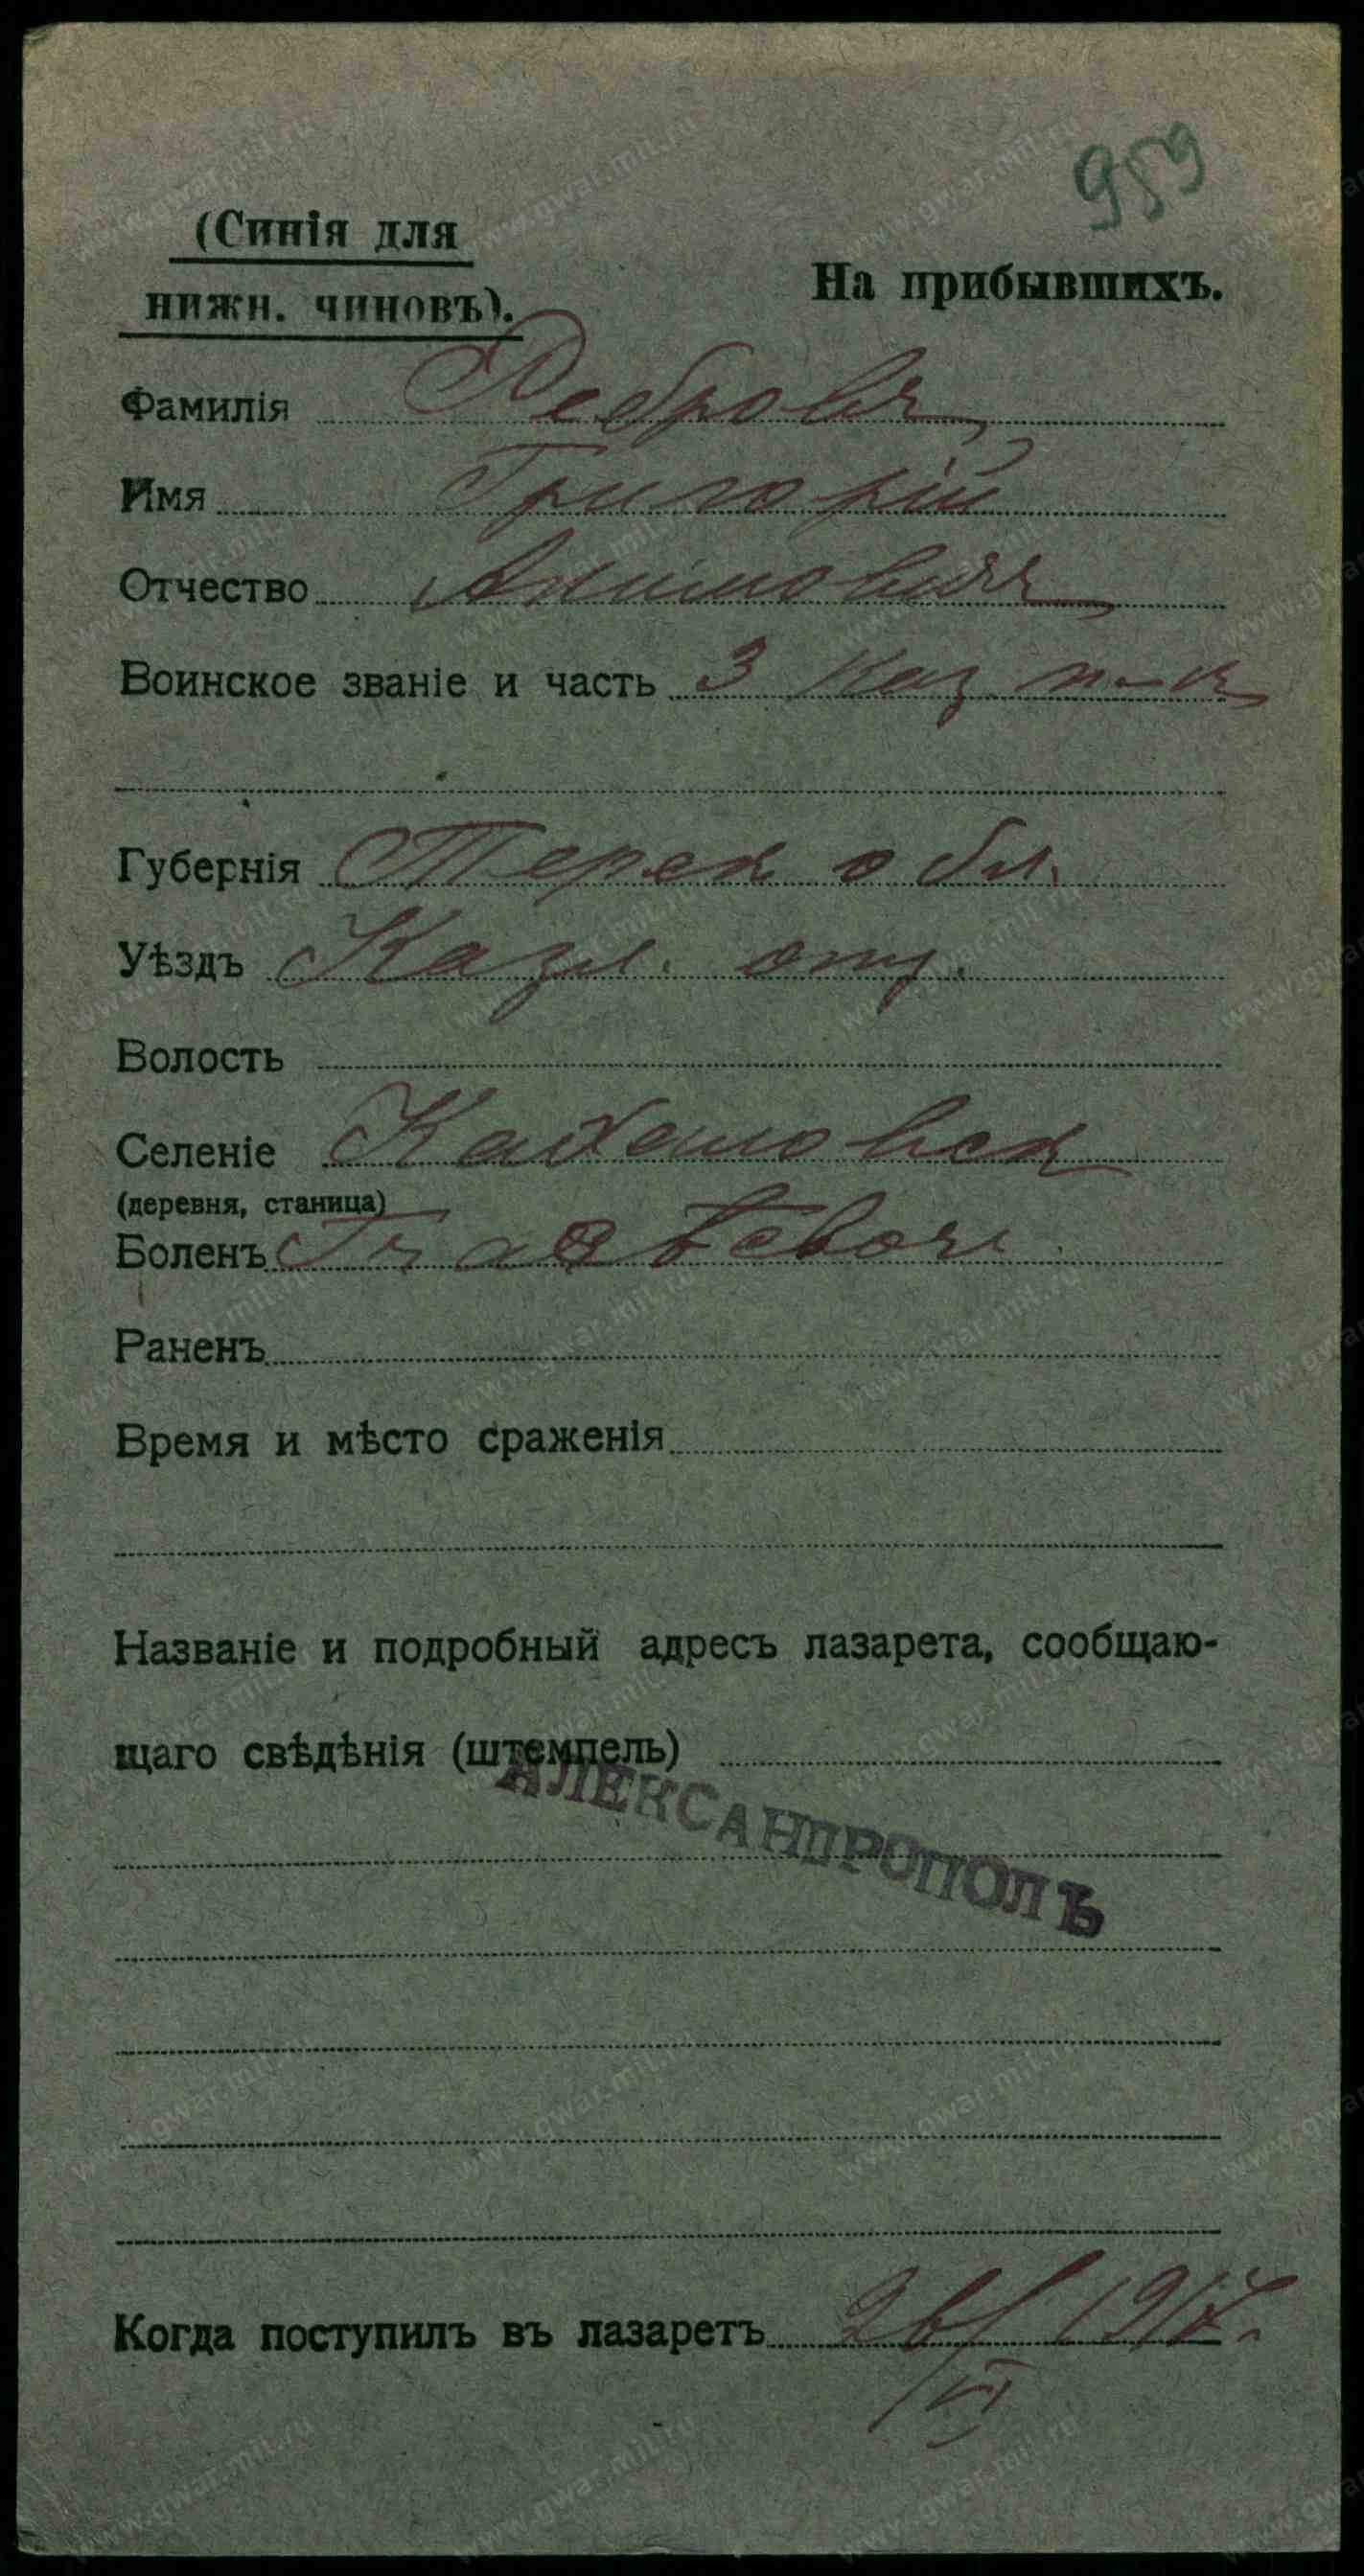 989
(Синія для
нижн. чиновъ).
На прибывшихъ.
Фамилія Ребровъ
Имя Григорій
Отчество
Воинское званіе и часть 3 Каз п-к
Губернія Терек обл.
Уѣздъ Кизл. отд.
Волость
Селеніе
(деревня, станица)
Боленъ
Раненъ
Время и мѣсто сраженія
Названіе и подробный адресъ лазарета, сообщаю-
щаго свѣдѣнія (штемпель)
АЛЕКСАНДРОПОЛЬ
Когда поступилъ въ лазаретъ 26/VI 1917.